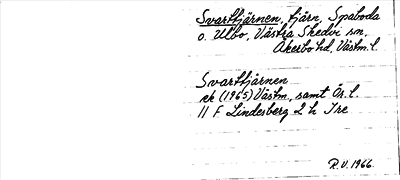 Svarttjärnen, tjärn, Spaboda
o. Ulbo, Västra Skedvi sn,
Åkerbo hd, Västm. l.
Svarttjärnen
ek (1965) Västm., samt Ör. l.
11 F Lindesberg 2 h Tre
R.V. 1966.